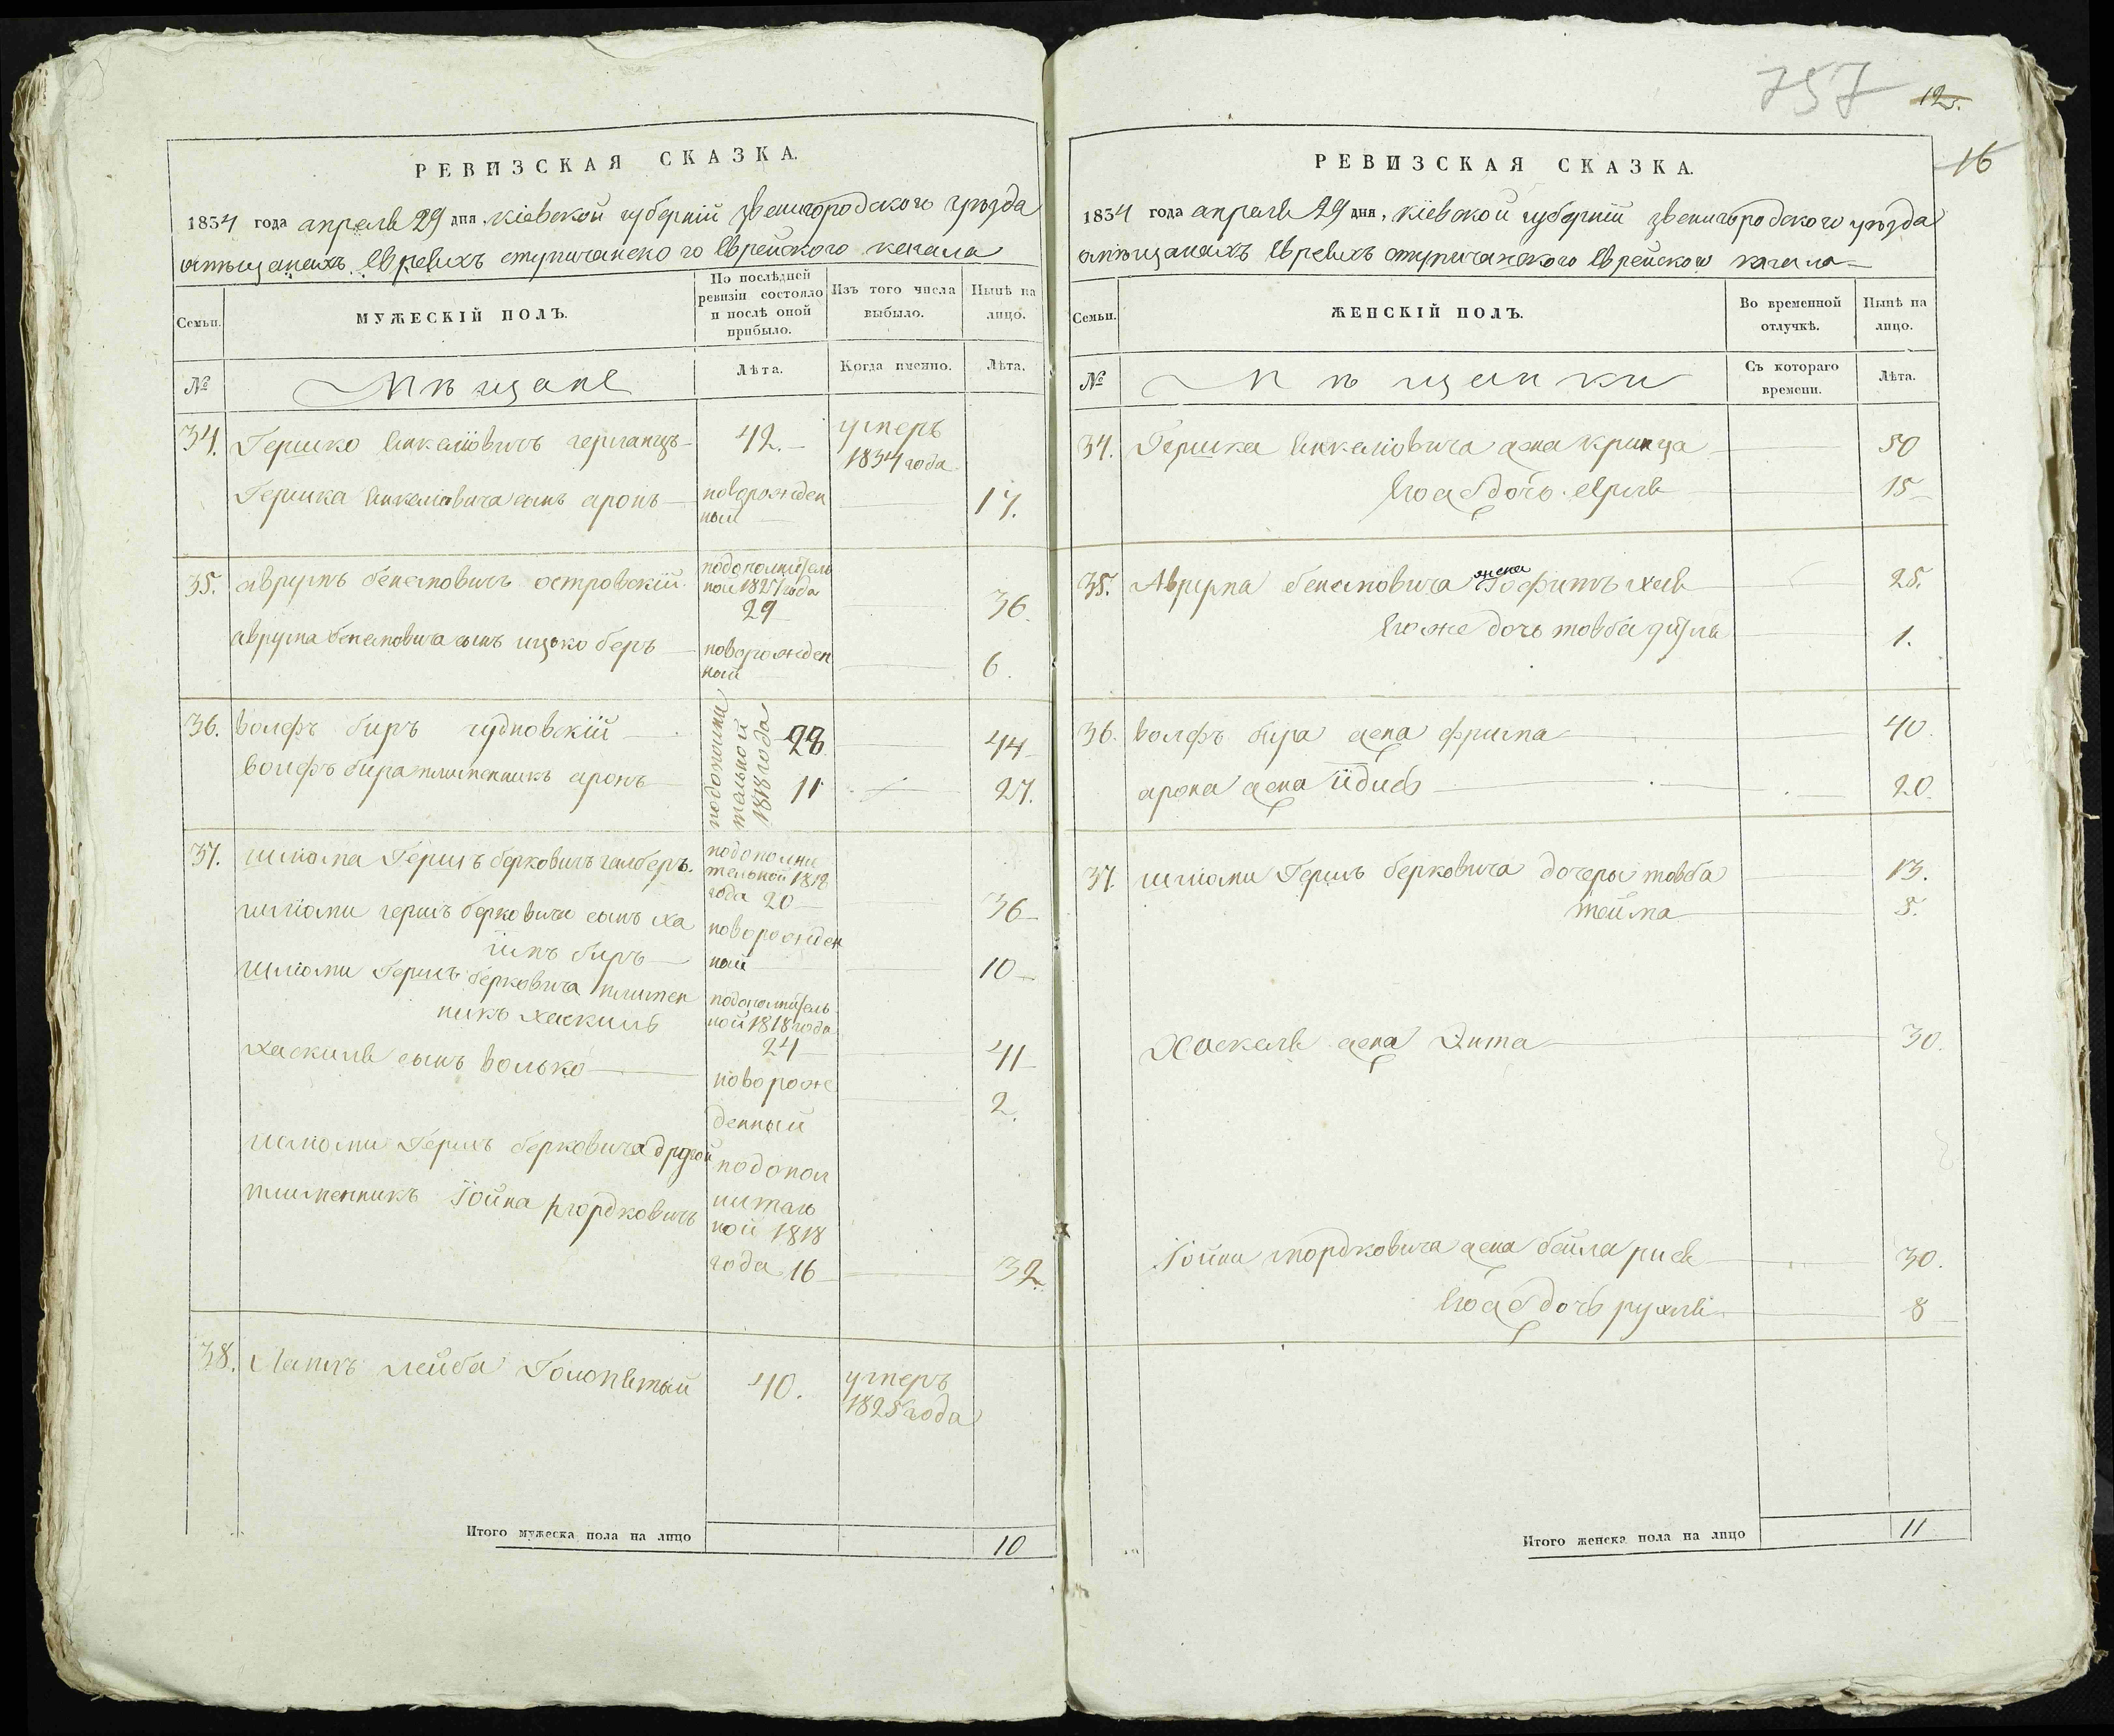 РЕВИЗСКАЯ СКАЗКА.
1834 года апреля 29 дня, Кіевской губерніи Звенигородского уѣзда
о мѣщанахъ Евреяхъ стуничанского Еврейского кагала
Семьи.
МУЖЕСКІЙ ПОЛЪ.
По послѣдней ревизіи состояло и послѣ оной прибыло.
Изъ того числа выбыло.
Нынѣ на лицо.
№
Мѣщане
Лѣта.
Когда именно.
Лѣта.
34. Гершко Янкелiовичъ 42. умеръ 1834 года
Гершка Янкелiовича сынъ аронъ новорожденный 17.
35. аврумъ бенемовичъ островскій подополнительной 1827 года 29 36.
аврума бенемовича сынъ ицько беръ новорожденный 6.
36. волфъ биръ чудновскій подополнительной 1818 года 28 44
волфъ бира племенникъ аронъ 11 27.
37. шліома Гершъ берковичъ галберъ. подополнительной 1818 года 20 36
шліоми гершъ берковича сынъ хаимъ биръ новорожденный 10
шліоми Гершъ берковича племенникъ хаскиль подополнительной 1818 года 24 41
хаскиля сынъ волько новорожденный 2.
шліоми Гершъ берковича другой
племенникъ Іойна мордковичъ подополнительной 1818 года 16 32
38. лейба Голопятый 40. умеръ 1825 года
Итого мужеска пола на лицо 10
757
12.
16
РЕВИЗСКАЯ СКАЗКА.
1834 года апреля 29 дня, Кіевской губерніи Звенигородского уѣзда
о мѣщанахъ Евреяхъ стуничанского Еврейского кагала
Семьи.
ЖЕНСКІЙ ПОЛЪ.
Во временной отлучкѣ.
Нынѣ на лицо.
№
Мѣщанки
Съ котораго времени.
Лѣта.
34. Гершка Янкелiовича жена криица 50
Его ж дочь 15
35. Аврума бенемовича жена 25.
Его же дочь товба 1.
36. волфъ бира жена фрима 40.
арона жена Iидись 20.
37. шліоми Гершъ берковича дочеры товба 13.
тейма 5.
Хаскеля жена Энта 30.
Іойни мордковича жена бейла рися 30.
Его ж дочь рухля 8
Итого женска пола на лицо 11